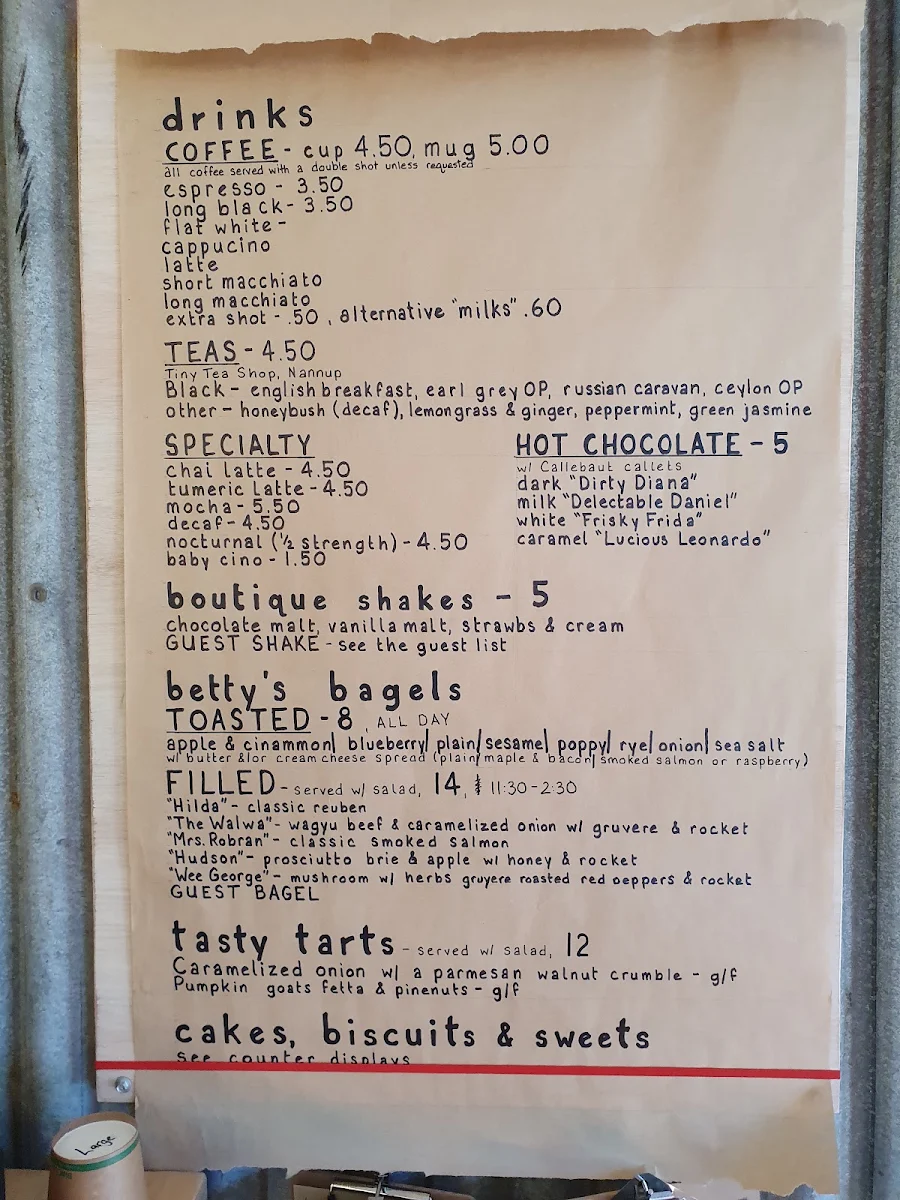 drinks
COFFEE - cup 4.50, mug 5.00
all coffee served with a double shot unless requested
espresso - 3.50
long black - 3.50
flat white -
cappucino
latte
short macchiato
long macchiato
extra shot - .50 , alternative "milks" .60
TEAS - 4.50
Tiny Tea Shop, Nannup
Black - english breakfast, earl grey OP, russian caravan, ceylon OP
other - honeybush (decaf), lemongrass & ginger, peppermint, green jasmine
SPECIALTY
chai latte - 4.50
tumeric latte - 4.50
mocha - 5.50
decaf - 4.50
nocturnal (½ strength) - 4.50
baby cino - 1.50
HOT CHOCOLATE - 5
w/ Callebaut callets
dark "Dirty Diana"
milk "Delectable Daniel"
white "Frisky Frida"
caramel "Lucious Leonardo"
boutique shakes - 5
chocolate malt, vanilla malt, strawbs & cream
GUEST SHAKE - see the guest list
betty's bagels
TOASTED - 8 , ALL DAY
apple & cinammon| blueberry| plain| sesame| poppy| rye| onion| sea salt
w/ butter &/or cream cheese spread (plain| maple & bacon| smoked salmon or raspberry)
FILLED - served w/ salad, 14, 11:30 - 2:30
"Hilda" - classic reuben
"The Walwa" - wagyu beef & caramelized onion w/ gruyere & rocket
"Mrs. Robran" - classic smoked salmon
"Hudson" - prosciutto brie & apple w/ honey & rocket
"Wee George" - mushroom w/ herbs gruyere roasted red peppers & rocket
GUEST BAGEL
tasty tarts - served w/ salad, 12
Caramelized onion w/ a parmesan walnut crumble - g/f
Pumpkin goats fetta & pinenuts - g/f
cakes, biscuits & sweets
see counter displays
Large